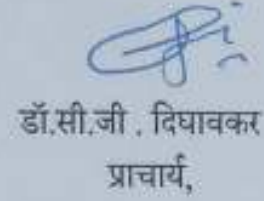 डॉ.सी.जी . दिघावकर
प्राचार्य,